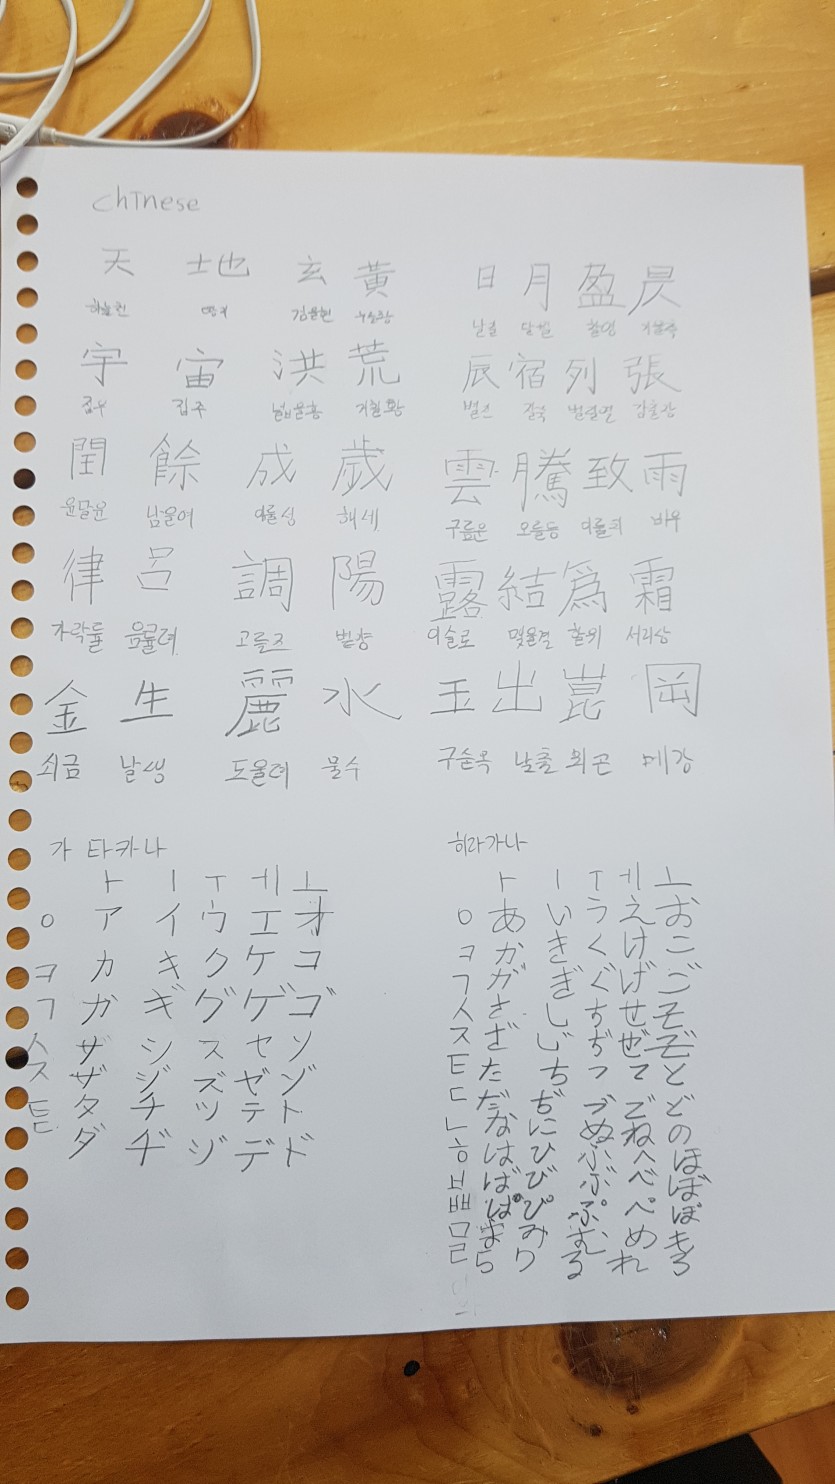 chinese
天 地 玄 黃 日 月 盈 昃
하늘천 땅지 검을현 누를황 날일 달월 찰영 기울측
宇 宙 洪 荒 辰 宿 列 張
집우 집주 넓을홍 거칠황 별즈 잘숙 벌릴열 김출장
閏 餘 成 歲 雲 騰 致 雨
윤달윤 남을여 이룰성 해세 구름운 오를등 이를치 비우
律 呂 調 陽 露 結 爲 霜
가락률 음률려 고를즈 볕양 이슬로 맺을결 할위 서리상
金 生 麗 水 玉 出 崑 岡
쇠금 날생 도울려 물수 구슨옥 날출 뫼곤 메강
가타카나
ㅏ ㅣ ㅜ ㅔ ㅗ
ㅇ ア イ ウ エ オ
ㅋ カ キ ク ケ コ
ㄱ ガ ギ グ ゲ ゴ
ㅅ サ シ ス セ ソ
ㅈ ザ ジ ズ ゼ ゾ
ㅌ タ チ ツ テ ト
ㄷ ダ ヂ ヅ デ ド
히라가나
ㅏ ㅣ ㅜ ㅔ ㅗ
ㅇ あ い う え お
ㅋ か き く け こ
ㄱ が ぎ ぐ げ ご
ㅅ さ し す せ そ
ㅈ ざ じ ず ぜ ぞ
ㅌ た ち つ て と
ㄷ だ ぢ づ で ど
ㄴ な に ぬ ね の
ㅎ は ひ ふ へ ほ
ㅂ ば び ぶ べ ぼ
ㅃ ぱ ぴ ぷ ぺ ぽ
ㅁ ま み む め も
ㄹ ら り る れ ろ